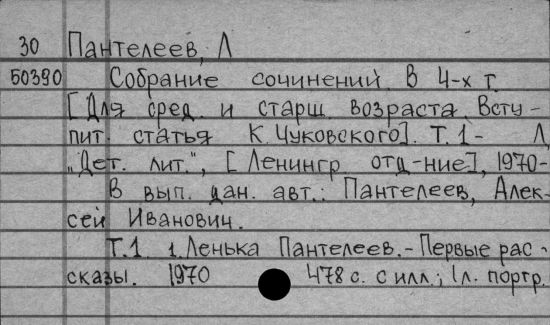 30 Пантелеев, Л
50390 Собрание сочинений. В 4-х т.
[Для сред. и старш. возраста. Всту-
пит. статья К. Чуковского]. Т. 1- Л,
"Дет. лит.", [Ленингр. отд-ние], 1970-
В вып. дан. авт.: Пантелеев, Алек-
сей Иванович.
Т.1 1. Ленька Пантелеев. - Первые рас-
сказы. 1970 478 с. с илл.; 1л. портр.